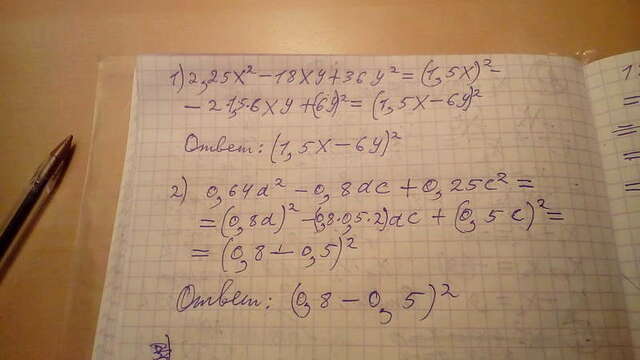 1) 2,25x² - 18xy + 36y² = (1,5x)² -
- 2·1,5·6xy + (6y)² = (1,5x - 6y)²
Ответ: (1,5x - 6y)²
2) 0,64d² - 0,8dc + 0,25c² =
= (0,8d)² - (0,8·0,5·2)dc + (0,5c)² =
= (0,8 - 0,5)²
Ответ: (0,8 - 0,5)²